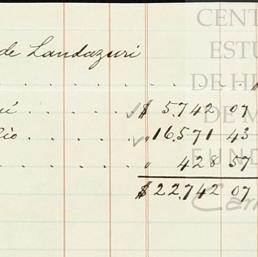 de Landazuri
CENT
ESTU
DE H
DE M
$ 5,742 07
" 16,571 43
" 428 57
FUND
$ 22,742 07
Car